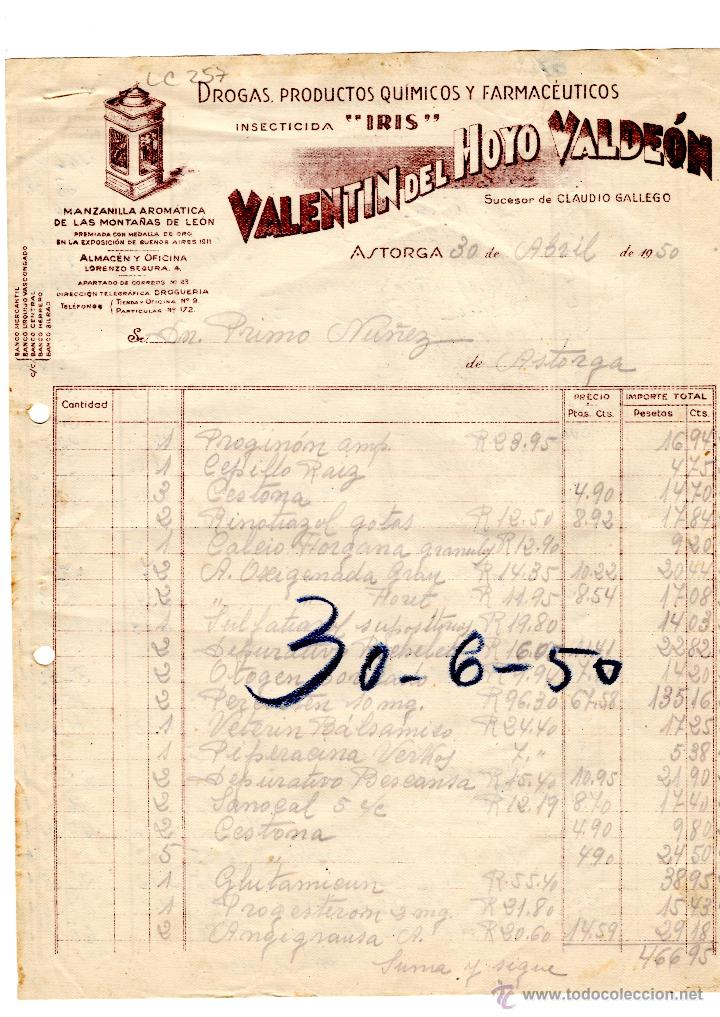 LC 257
DROGAS, PRODUCTOS QUÍMICOS Y FARMACÉUTICOS
INSECTICIDA "IRIS"
VALENTIN DEL HOYO VALDEÓN
Sucesor de CLAUDIO GALLEGO
MANZANILLA AROMÁTICA
DE LAS MONTAÑAS DE LEÓN
PREMIADA CON MEDALLA DE ORO
EN LA EXPOSICIÓN DE BUENOS AIRES 1911
ALMACÉN Y OFICINA
LORENZO SEGURA, 4.
APARTADO DE CORREOS Nº 23
DIRECCIÓN TELEGRÁFICA DROGUERIA
TELÉFONOS { TIENDA Y OFICINA Nº 9.
PARTICULAR Nº 172.
C/C/ BANCO MERCANTIL
BANCO URQUIJO VASCONGADO
BANCO CENTRAL
BANCO HERRERO
BANCO BILBAO
ASTORGA 30 de Abril de 1950
Sr. Dn. Primo Nuñez
de Astorga
Cantidad PRECIO IMPORTE TOTAL
Ptas. Cts. Pesetas Cts.
1 Proginón amp. R 23.95 16 94
1 Cepillo Raiz 4 75
3 Cestona 4.90 14 70
2 Rinotiazol gotas R 12.50 8.92 17 84
1 Calcio R 12.90 9 20
2 A. Oxigenada Gran R 14.35 10.22 20 44
2 " Foret R 11.95 8.54 17 08
1 R 19.80 14 03
2 Depurativo R 16.00 11.41 22 82
2 Otogen R 9.90 14 20
2 10 mg. R 96.30 67.58 135 16
1 Veterin Bálsamico R 24.40 17 25
1 Piperacina Verkos 7." 5 38
2 Depurativo Bescansa R 15.40 10.95 21 90
2 Sanocal 5 cc R 12.19 8.70 17 40
2 Cestona 4.90 9 80
5 4.90 24 50
1 Glutamicun R 55.40 38 95
1 Progesteron 2 mg. R 21.80 15 43
2 Angigrausa A. R 20.60 14.59 29 18
Suma y sigue 466 95
30-6-50
www.todocoleccion.net